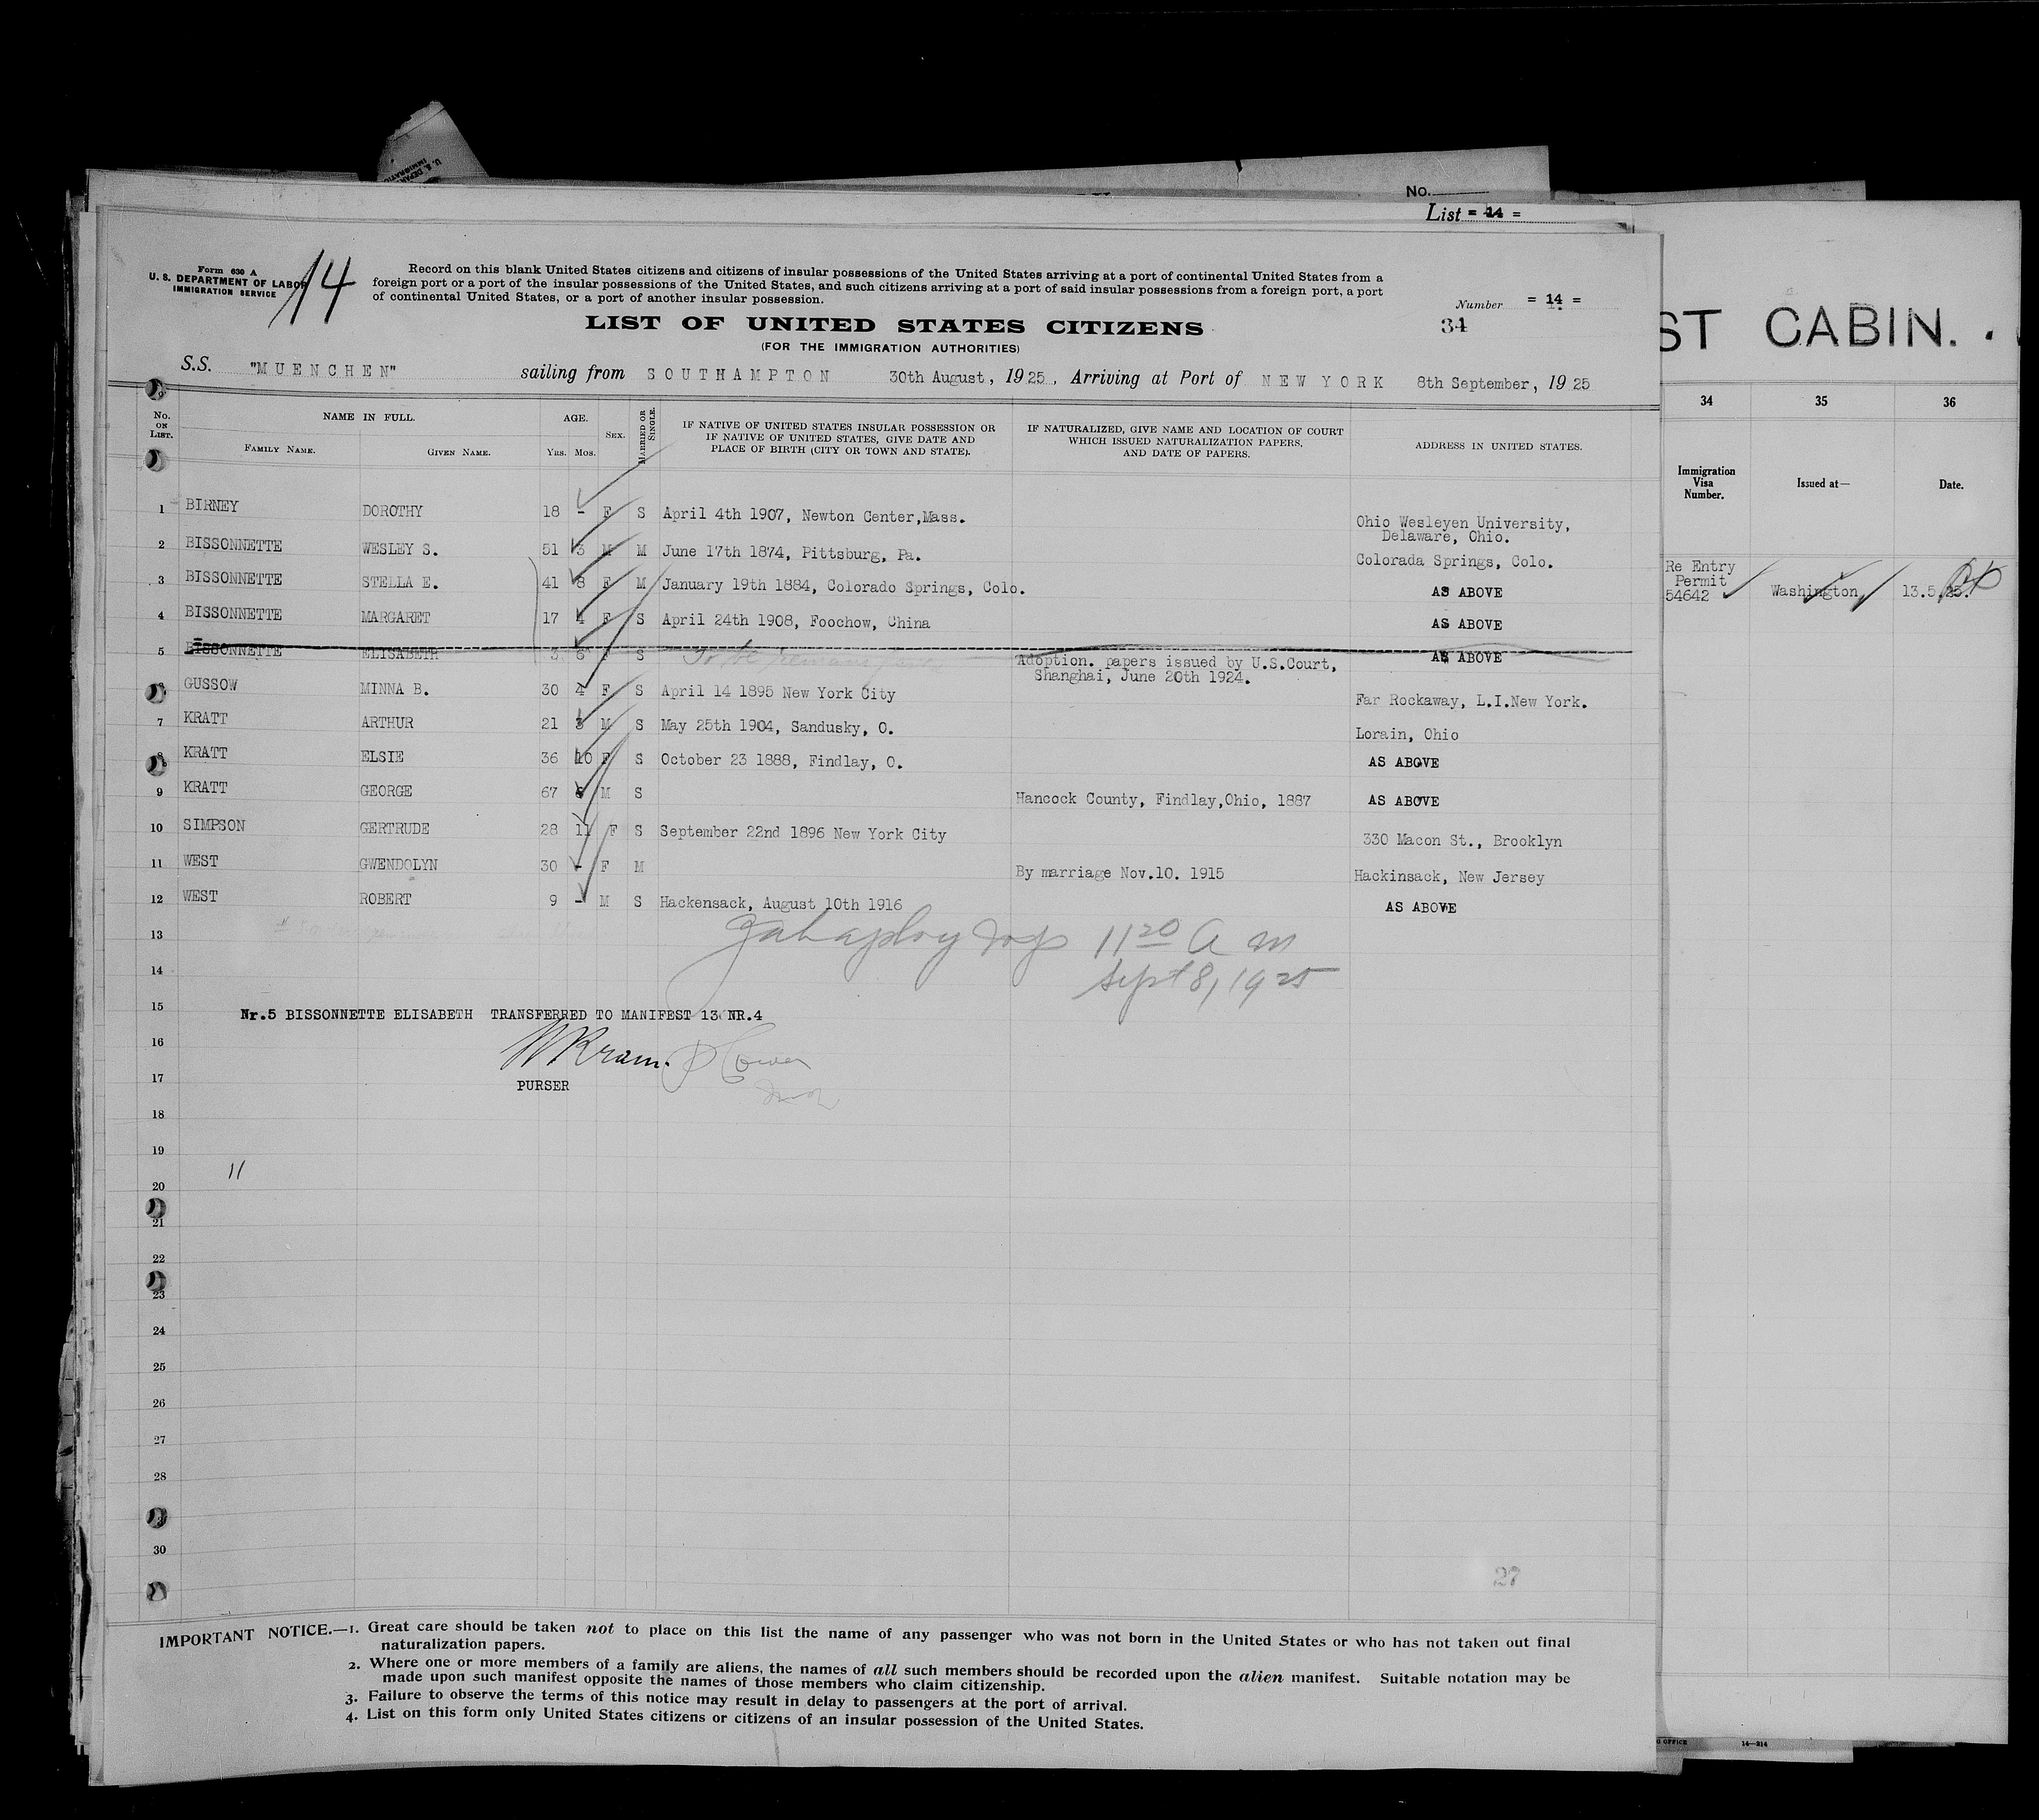 No.
List = 14 =
Form 630 A
U. S. DEPARTMENT OF LABOR
IMMIGRATION SERVICE
14
Record on this blank United States citizens and citizens of insular possessions of the United States arriving at a port of continental United States from a
foreign port or a port of the insular possessions of the United States, and such citizens arriving at a port of said insular possessions from a foreign port, a port
of continental United States, or a port of another insular possession.
Number = 14 =
34
LIST OF UNITED STATES CITIZENS
(FOR THE IMMIGRATION AUTHORITIES)
S.S. "MUENCHEN" sailing from SOUTHAMPTON 30th August, 1925, Arriving at Port of NEW YORK 8th September, 1925
No. ON LIST. NAME IN FULL. FAMILY NAME. GIVEN NAME. AGE. YRS. MOS. SEX. MARRIED OR SINGLE. IF NATIVE OF UNITED STATES INSULAR POSSESSION OR IF NATIVE OF UNITED STATES, GIVE DATE AND PLACE OF BIRTH (CITY OR TOWN AND STATE). IF NATURALIZED, GIVE NAME AND LOCATION OF COURT WHICH ISSUED NATURALIZATION PAPERS, AND DATE OF PAPERS. ADDRESS IN UNITED STATES.
1 BIRNEY DOROTHY 18 - F S April 4th 1907, Newton Center,Mass. Ohio Wesleyen University,
Delaware, Ohio.
2 BISSONNETTE WESLEY S. 51 3 M M June 17th 1874, Pittsburg, Pa. Colorada Springs, Colo.
3 BISSONNETTE STELLA E. 41 8 F M January 19th 1884, Colorado Springs, Colo. AS ABOVE
4 BISSONNETTE MARGARET 17 4 F S April 24th 1908, Foochow, China AS ABOVE
5 BISSONNETTE ELISABETH 3 6 F S Adoption. papers issued by U.S.Court, AS ABOVE
Shanghai, June 20th 1924.
6 GUSSOW MINNA B. 30 4 F S April 14 1895 New York City Far Rockaway, L.I.New York.
7 KRATT ARTHUR 21 3 M S May 25th 1904, Sandusky, O. Lorain, Ohio
8 KRATT ELSIE 36 10 F S October 23 1888, Findlay, O. AS ABOVE
9 KRATT GEORGE 67 M S Hancock County, Findlay,Ohio, 1887 AS ABOVE
10 SIMPSON GERTRUDE 28 11 F S September 22nd 1896 New York City 330 Macon St., Brooklyn
11 WEST GWENDOLYN 30 - F M By marriage Nov.10. 1915 Hackinsack, New Jersey
12 WEST ROBERT 9 - M S Hackensack, August 10th 1916 AS ABOVE
13 11 20 A m
14 Sept 8, 1925
15 Nr.5 BISSONNETTE ELISABETH TRANSFERRED TO MANIFEST 13 NR.4
16
17 PURSER
18
19
11
20
21
22
23
24
25
26
27
28
30
27
IMPORTANT NOTICE.—1. Great care should be taken not to place on this list the name of any passenger who was not born in the United States or who has not taken out final
naturalization papers.
2. Where one or more members of a family are aliens, the names of all such members should be recorded upon the alien manifest. Suitable notation may be
made upon such manifest opposite the names of those members who claim citizenship.
3. Failure to observe the terms of this notice may result in delay to passengers at the port of arrival.
4. List on this form only United States citizens or citizens of an insular possession of the United States.
ST CABIN.
34 35 36
Immigration Visa Number. Issued at— Date.
Re Entry
Permit
54642 Washington, 13.5.25.
14—314